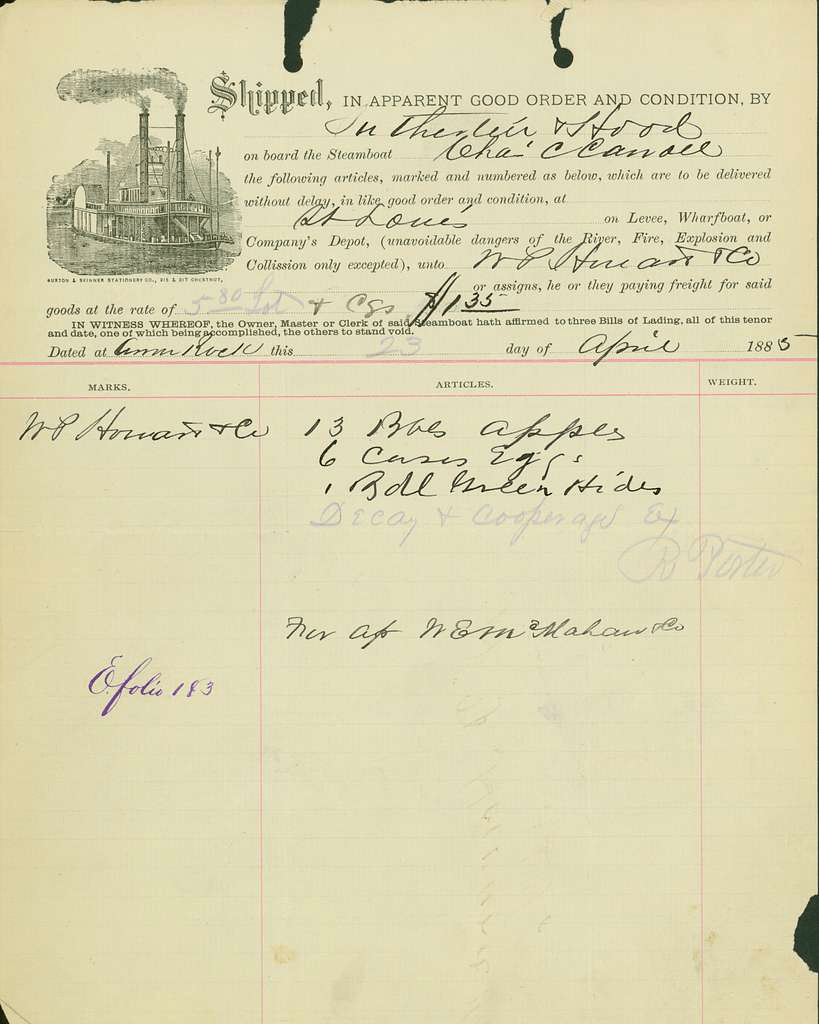 Shipped, IN APPARENT GOOD ORDER AND CONDITION, BY
& Hood
on board the Steamboat Chas C Carroll
the following articles, marked and numbered as below, which are to be delivered
without delay, in like good order and condition, at
St Louis on Levee, Wharfboat, or
Company's Depot, (unavoidable dangers of the River, Fire, Explosion and
Collission only excepted), unto W P Howard & Co
or assigns, he or they paying freight for said
goods at the rate of 5 80 Lot & Cgs $1 35
IN WITNESS WHEREOF, the Owner, Master or Clerk of said Steamboat hath affirmed to three Bills of Lading, all of this tenor
and date, one of which being accomplished, the others to stand void.
Dated at this 23 day of April 1885
BUXTON & SKINNER STATIONERY CO., 215 & 217 CHESTNUT,
MARKS. ARTICLES. WEIGHT.
W P Howard & Co 13 Bbls Apples
6 Cases Eggs
1 Bdl Green Hides
Decay & Cooperage Ex
R Porter
For a/c W E McMahan & Co
E. folio 183